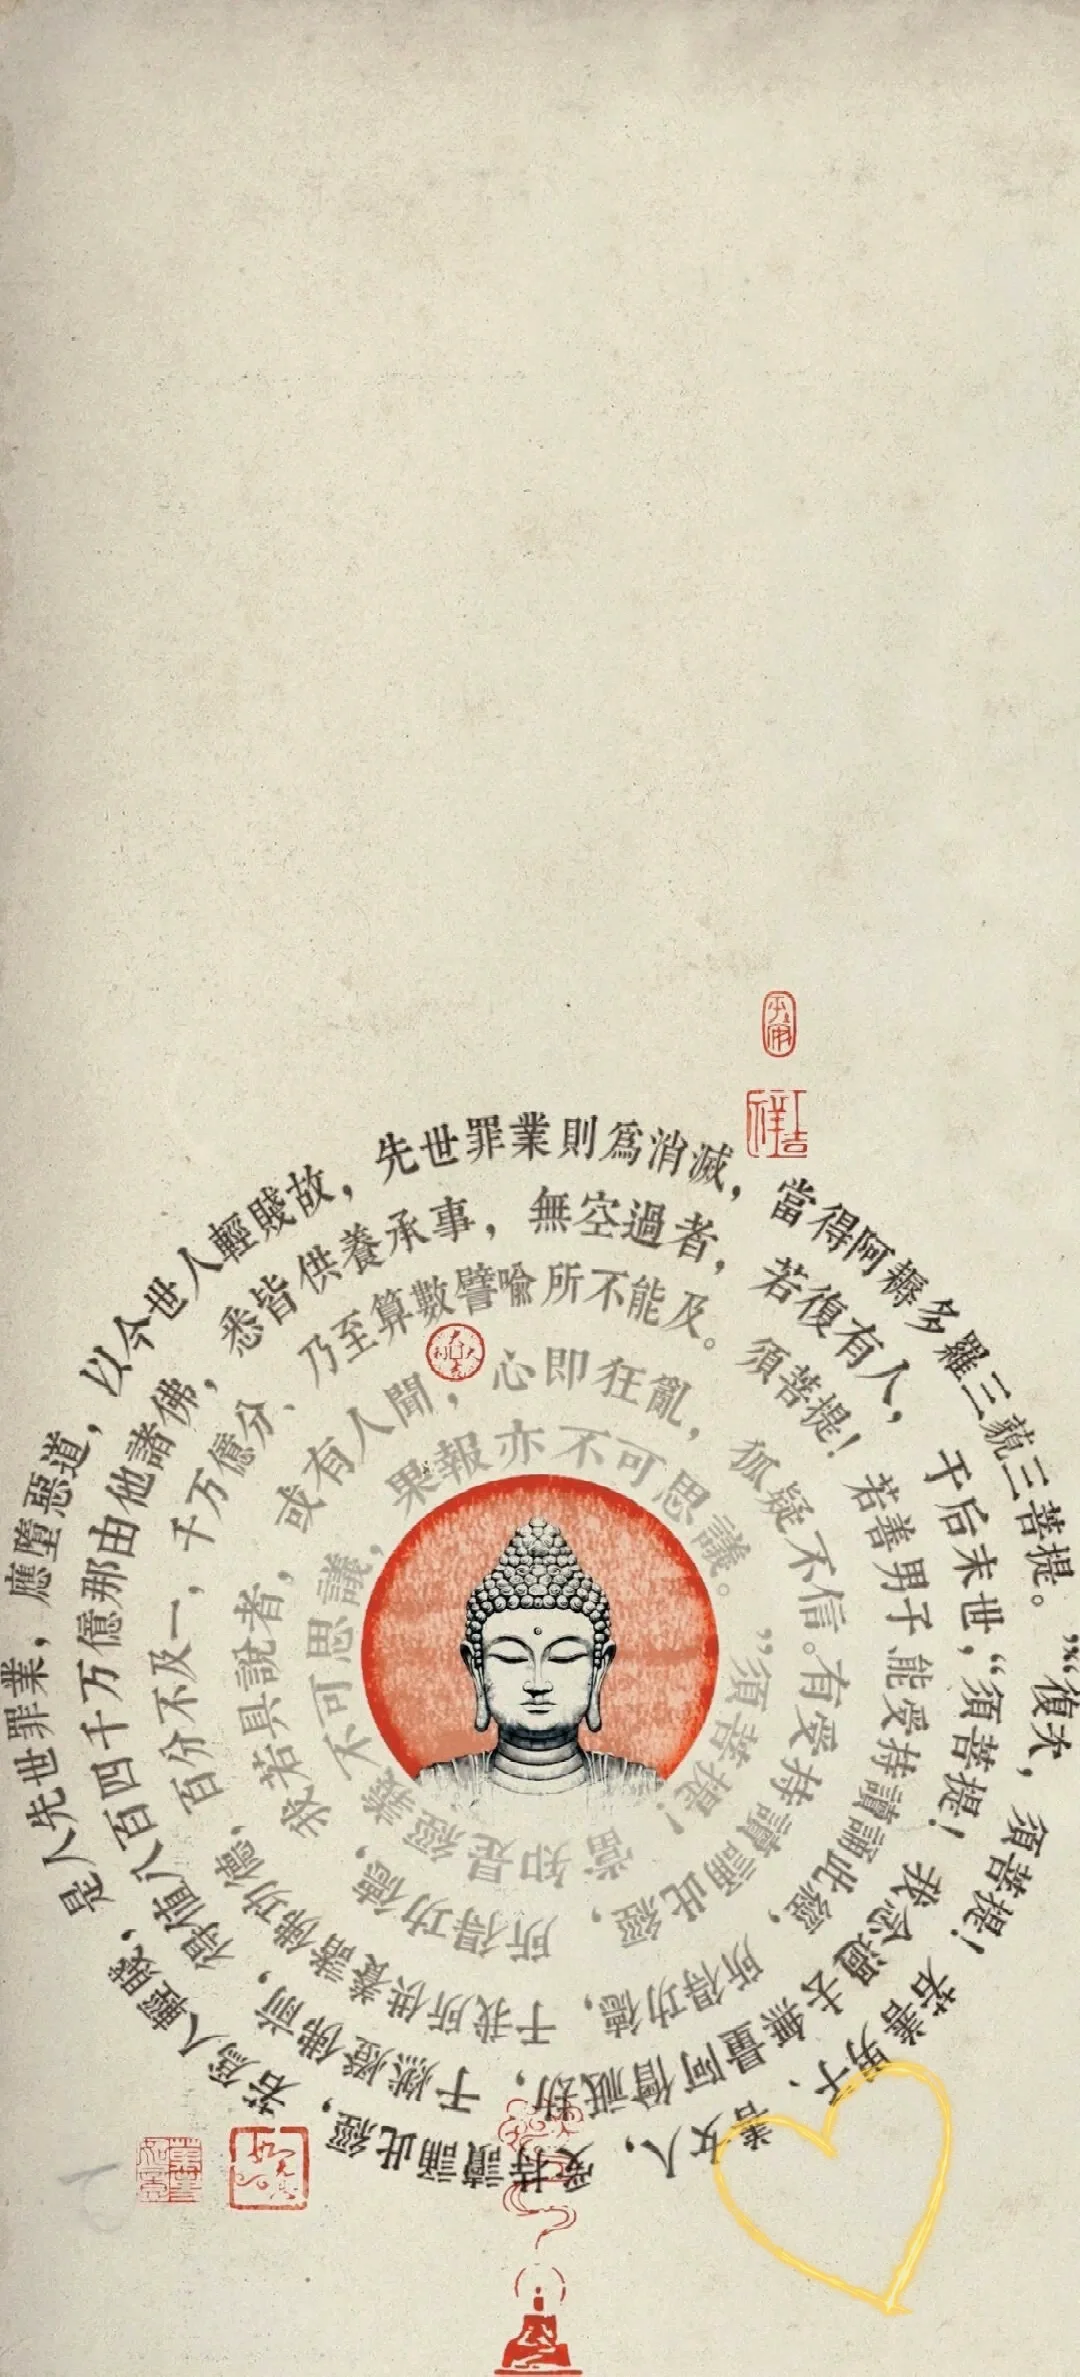 ”“復次，須菩提！若善男子、善女人，受持讀誦此經，若爲人輕賤，是人先世罪業，應墮惡道，以今世人輕賤故，先世罪業則爲消滅，當得阿耨多羅三藐三菩提。
“須菩提！我念過去無量阿僧祇劫，于燃燈佛前，得值八百四千万億那由他諸佛，悉皆供養承事，無空過者，若復有人，于后末世，
能受持讀誦此經，所得功德，于我所供養諸佛功德，百分不及一，千万億分、乃至算數譬喻所不能及。須菩提！若善男子
有受持讀誦此經，所得功德，我若具說者，或有人聞，心即狂亂，狐疑不信。
”須菩提！當知是經義不可思議，果報亦不可思議。
吉祥